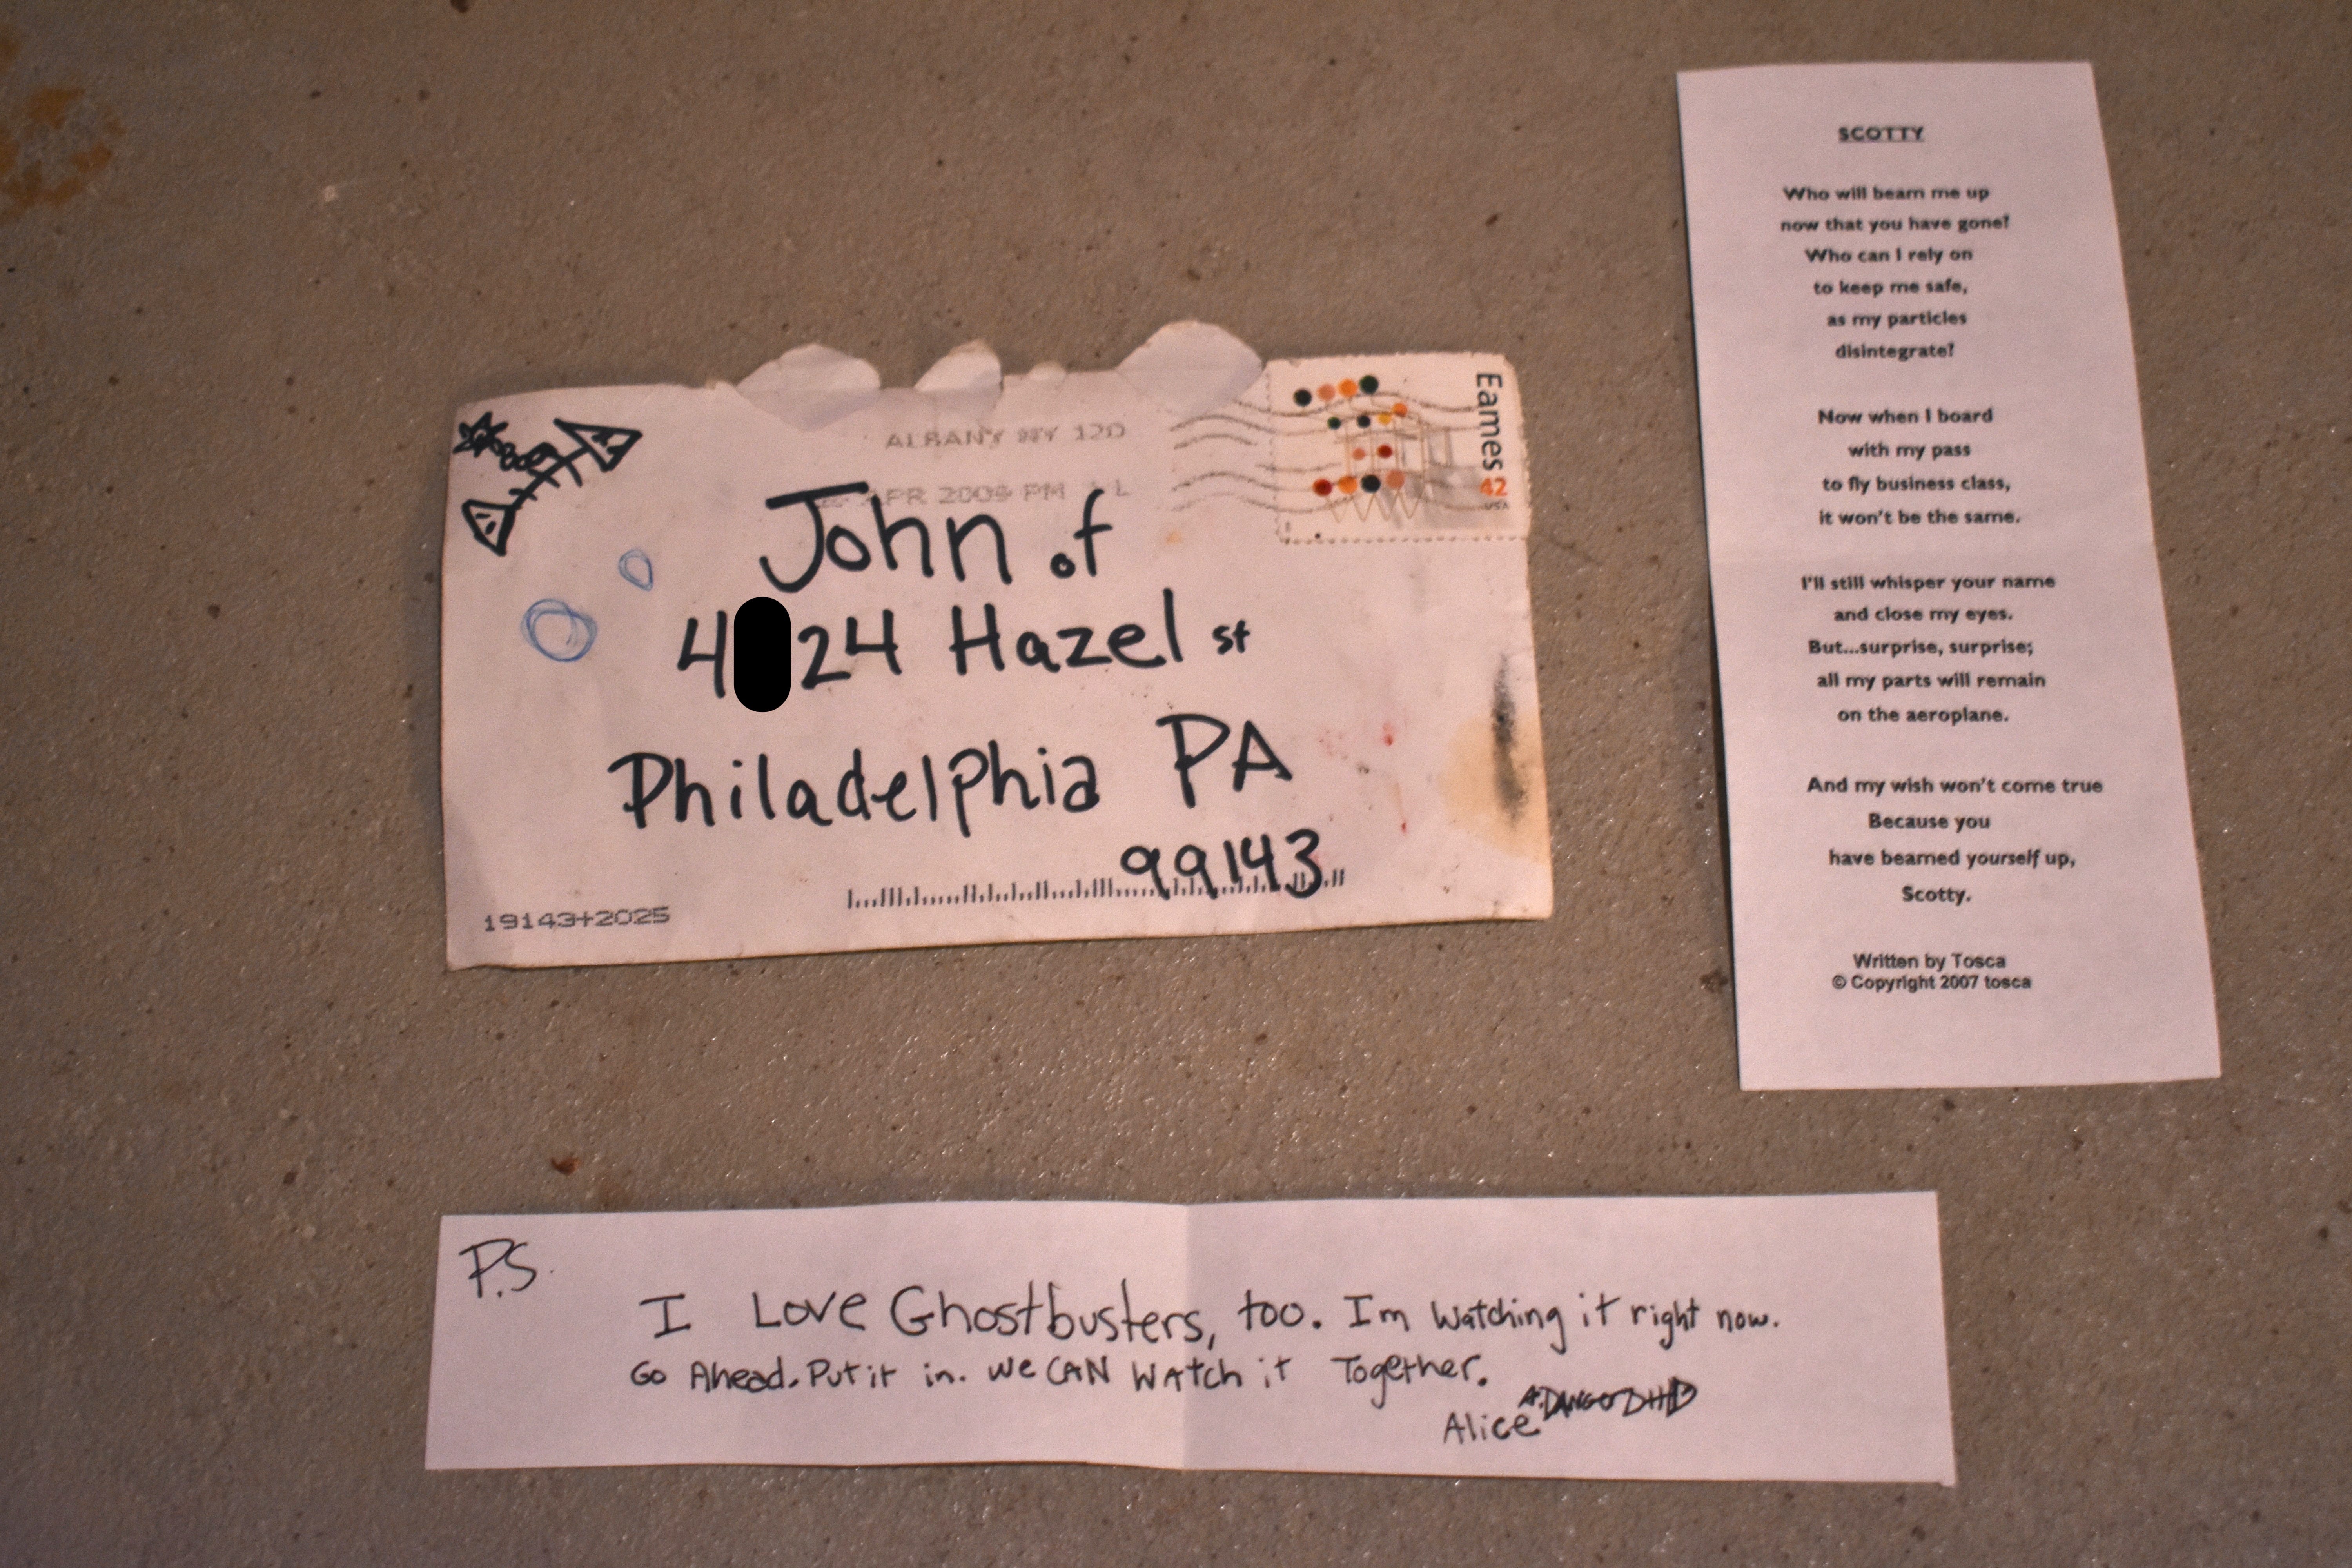 ALBANY NY 120
APR 2009 PM L
Eames
42
USA
John of
4 24 Hazel st
Philadelphia PA
99143
19143+2025
SCOTTY
Who will beam me up
now that you have gone?
Who can I rely on
to keep me safe,
as my particles
disintegrate?
Now when I board
with my pass
to fly business class,
it won't be the same.
I'll still whisper your name
and close my eyes.
But...surprise, surprise;
all my parts will remain
on the aeroplane.
And my wish won't come true
Because you
have beamed yourself up,
Scotty.
Written by Tosca
© Copyright 2007 tosca
P.S.
I Love Ghostbusters, too. I'm watching it right now.
Go Ahead. Put it in. we CAN WAtch it Together.
Alice